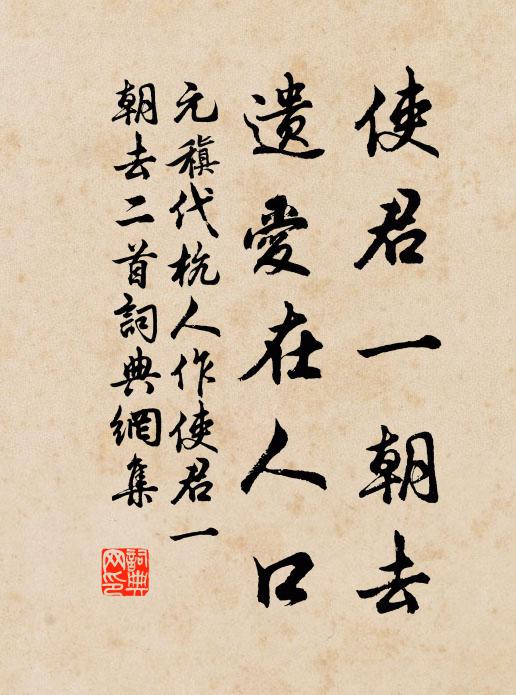 使君一朝去
遺愛在人口
元稹代杭人作使君一
朝去二首詞典網集
詞典
网印